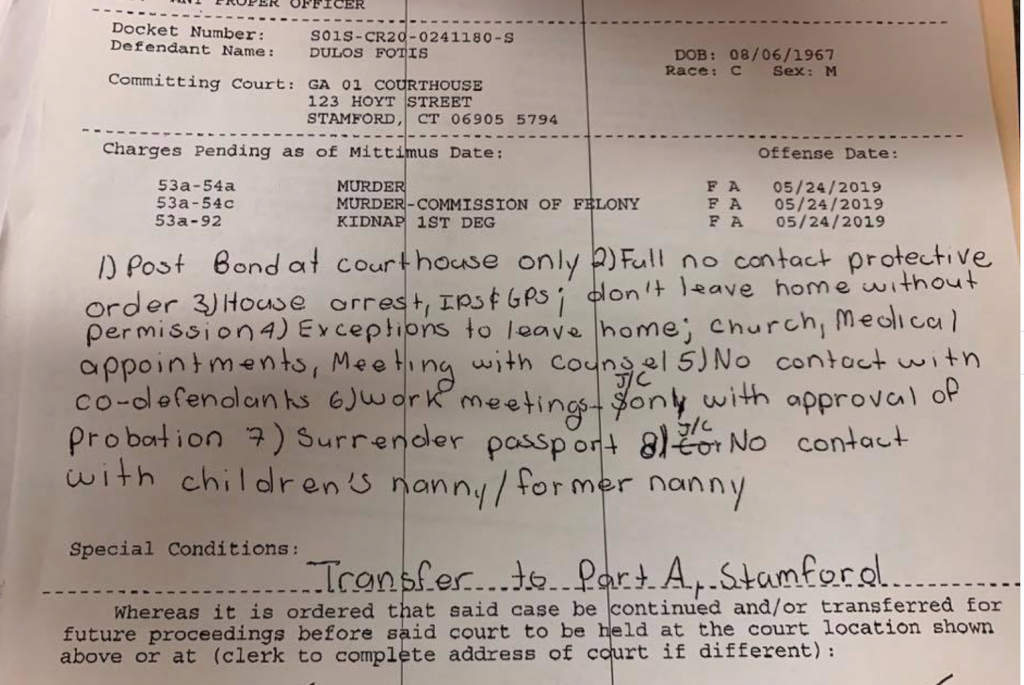 ANY PROPER OFFICER
Docket Number: S01S-CR20-0241180-S
Defendant Name: DULOS FOTIS DOB: 08/06/1967
Race: C Sex: M
Committing Court: GA 01 COURTHOUSE
123 HOYT STREET
STAMFORD, CT 06905 5794
Charges Pending as of Mittimus Date: Offense Date:
53a-54a MURDER F A 05/24/2019
53a-54c MURDER-COMMISSION OF FELONY F A 05/24/2019
53a-92 KIDNAP 1ST DEG F A 05/24/2019
1) Post Bond at courthouse only 2) Full no contact protective
order 3) House arrest, IPS & GPS; don't leave home without
permission 4) Exceptions to leave home; church, Medical
appointments, Meeting with counsel 5) No contact with
J/C
co-defendants 6) Work meetings - only with approval of
J/C
Probation 7) Surrender passport 8) No contact
with children's nanny/former nanny
Special Conditions:
Transfer to Part A, Stamford
Whereas it is ordered that said case be continued and/or transferred for
future proceedings before said court to be held at the court location shown
above or at (clerk to complete address of court if different):